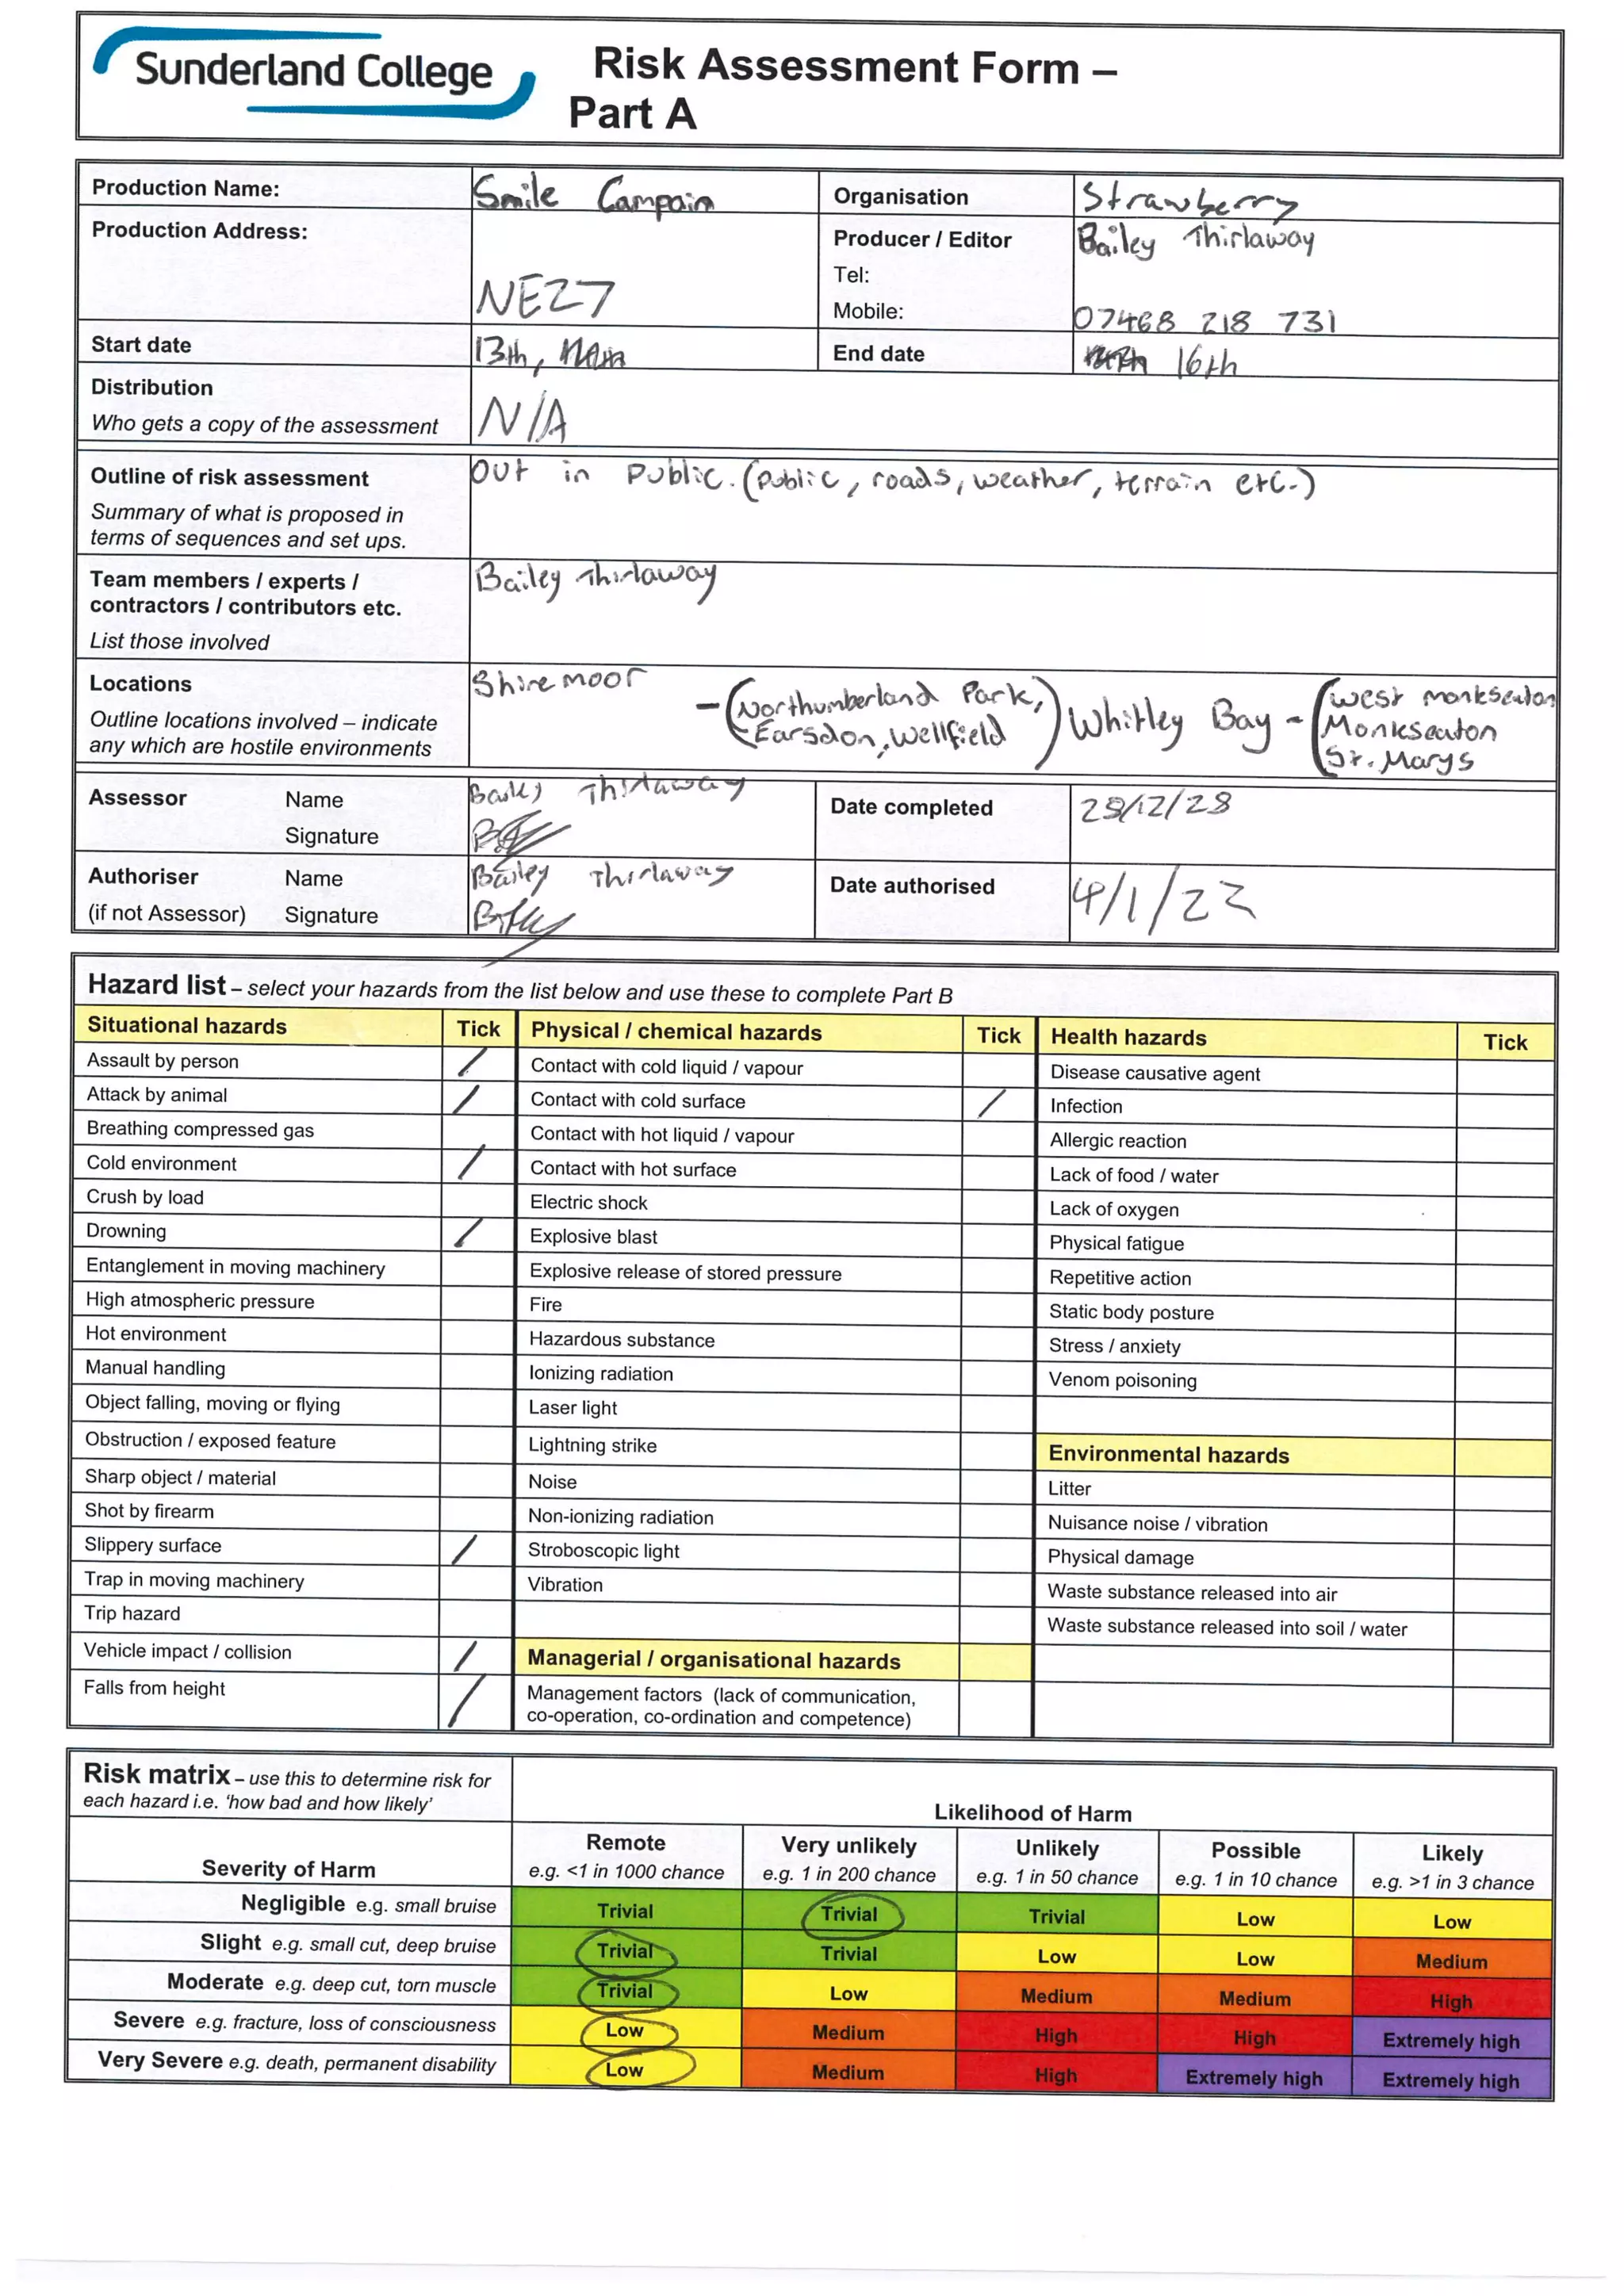 Sunderland College
Risk Assessment Form –
Part A
Production Name: Smile Campain Organisation Strawberry
Production Address: NE27 Producer / Editor Bailey Thirlaway
Tel:
Mobile: 07468 218 731
Start date 13th, End date 16th
Distribution
Who gets a copy of the assessment N/A
Outline of risk assessment Out in Public. (Public, roads, weather, terrain etc.)
Summary of what is proposed in
terms of sequences and set ups.
Team members / experts / Bailey Thirlaway
contractors / contributors etc.
List those involved
Locations Shiremoor - (Northumberland Park, Earsdon, Wellfield) Whitley Bay - (West Monkseaton
Outline locations involved – indicate Monkseaton
any which are hostile environments St. Marys
Assessor Name Bailey Thirlaway Date completed
Signature
Authoriser Name Bailey Thirlaway Date authorised 4/1/22
(if not Assessor) Signature
Hazard list – select your hazards from the list below and use these to complete Part B
Situational hazards Tick Physical / chemical hazards Tick Health hazards Tick
Assault by person / Contact with cold liquid / vapour Disease causative agent
Attack by animal / Contact with cold surface / Infection
Breathing compressed gas Contact with hot liquid / vapour Allergic reaction
Cold environment / Contact with hot surface Lack of food / water
Crush by load Electric shock Lack of oxygen
Drowning / Explosive blast Physical fatigue
Entanglement in moving machinery Explosive release of stored pressure Repetitive action
High atmospheric pressure Fire Static body posture
Hot environment Hazardous substance Stress / anxiety
Manual handling Ionizing radiation Venom poisoning
Object falling, moving or flying Laser light
Obstruction / exposed feature Lightning strike Environmental hazards
Sharp object / material Noise Litter
Shot by firearm Non-ionizing radiation Nuisance noise / vibration
Slippery surface / Stroboscopic light Physical damage
Trap in moving machinery Vibration Waste substance released into air
Trip hazard Waste substance released into soil / water
Vehicle impact / collision / Managerial / organisational hazards
Falls from height / Management factors (lack of communication,
co-operation, co-ordination and competence)
Risk matrix – use this to determine risk for
each hazard i.e. 'how bad and how likely' Likelihood of Harm
Severity of Harm Remote Very unlikely Unlikely Possible Likely
e.g. <1 in 1000 chance e.g. 1 in 200 chance e.g. 1 in 50 chance e.g. 1 in 10 chance e.g. >1 in 3 chance
Negligible e.g. small bruise Trivial Trivial Trivial Low Low
Slight e.g. small cut, deep bruise Trivial Trivial Low Low Medium
Moderate e.g. deep cut, torn muscle Trivial Low Medium Medium High
Severe e.g. fracture, loss of consciousness Low Medium High High Extremely high
Very Severe e.g. death, permanent disability Low Medium High Extremely high Extremely high